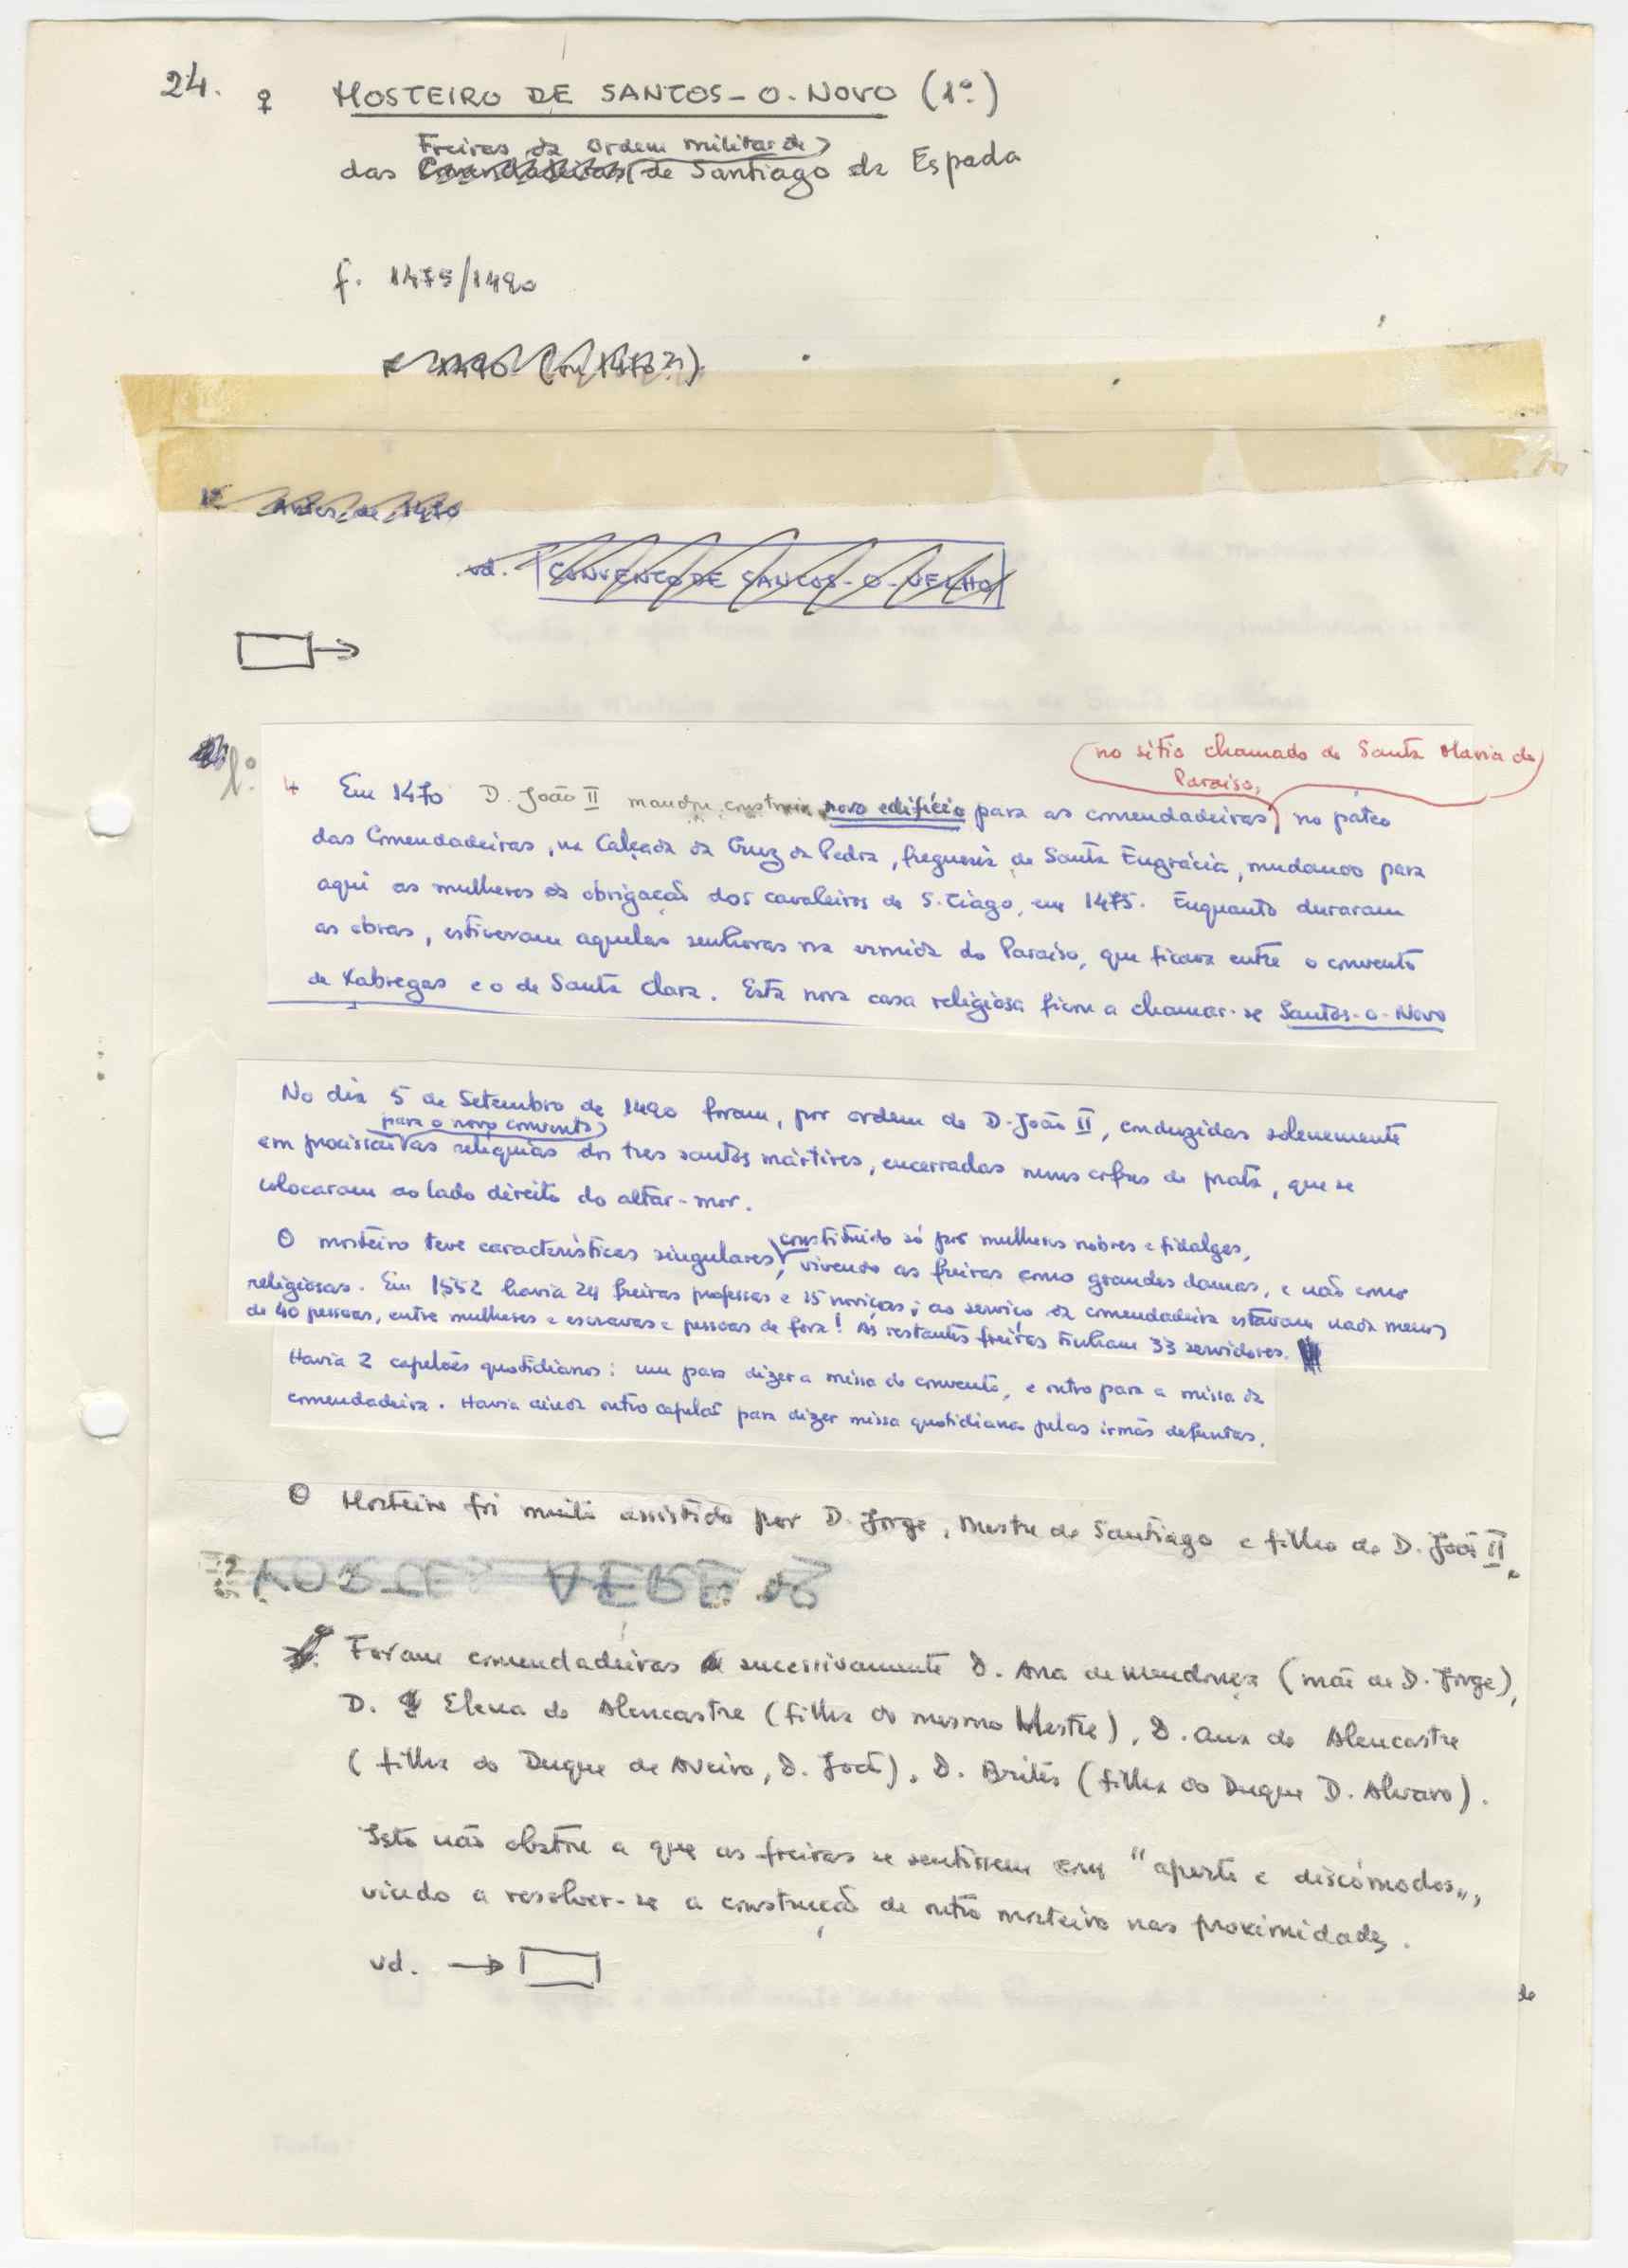 24. ♀ MOSTEIRO DE SANTOS-O-NOVO (1º)
Freiras da Ordem militar de
das Comendadeiras de Santiago da Espada
f. 1475/1490
Antes de 1470
vd. CONVENTO DE SANTOS-O-VELHO
(no sítio chamado de Santa Maria do
Paraíso,
1º
4 Em 1470 D. João II mandou construir novo edifício para as comendadeiras, no páteo
das Comendadeiras, na Calçada da Cruz da Pedra, freguesia de Santa Engrácia, mudando para
aqui as mulheres da obrigação dos cavaleiros de S. Tiago, em 1475. Enquanto duraram
as obras, estiveram aquelas senhoras na ermida do Paraíso, que ficava entre o convento
de Xabregas e o de Santa Clara. Esta nova casa religiosa ficou a chamar-se Santos-o-Novo
No dia 5 de Setembro de 1490 foram, por ordem de D. João II, conduzidas solenemente
para o novo convento
em procissão as relíquias dos tres santos mártires, encerradas nuns cofres de prata, que se
colocaram ao lado direito do altar-mor.
constituido só por mulheres nobres e fidalgas,
O mosteiro teve características singulares, vivendo as freiras como grandes damas, e não como
religiosas. Em 1552 havia 24 freiras professas e 15 noviças; ao serviço da comendadeira estavam nada menos
de 40 pessoas, entre mulheres e escravas e pessoas de fora! As restantes freiras tinham 33 servidores.
Havia 2 capelães quotidianos: um para dizer a missa do convento, e outro para a missa da
comendadeira. Havia ainda outro capelão para dizer missa quotidiana pelas irmãs defuntas.
O Mosteiro foi muito assistido por D. Jorge, Mestre de Santiago e filho de D. João II.
Foram comendadeiras sucessivamente D. Ana de Mendonça (mãe de D. Jorge),
D. Elena de Alencastre (filha do mesmo Mestre), D. Ana de Alencastre
(filha do Duque de Aveiro, D. João), D. Brites (filha do Duque D. Alvaro).
Isto não obstou a que as freiras se sentissem em "aperto e descómodos",
vindo a resolver-se a construção de outro mosteiro nas proximidades.
vd.
de